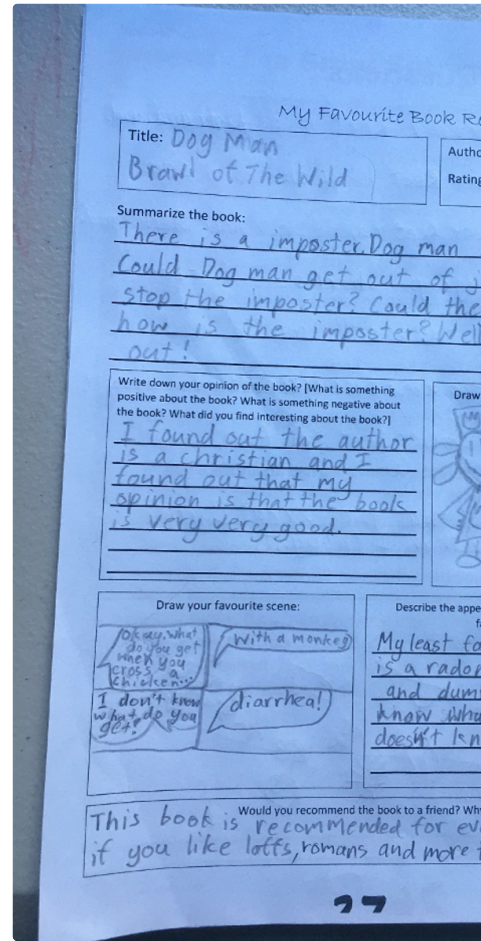 My Favourite Book Re
Title: Dog Man
Brawl of The Wild
Autho
Rating
Summarize the book:
There is a imposter. Dog man
Could Dog man get out of j
stop the imposter? Could the
how is the imposter? Well
out!
Write down your opinion of the book? [What is something
positive about the book? What is something negative about
the book? What did you find interesting about the book?]
I found out the author
is a christian and I
found out that my
opinion is that the book
is very very good.
Draw
Draw your favourite scene:
Okay, what
do you get
when you
cross a
chicken...
With a monkey
I don't know
what do you
get?
diarrhea!
Describe the appe
f
My least fa
is a rador
and dum
know wha
doesn't kn
Would you recommend the book to a friend? Wh
This book is recommended for ev
if you like loffs, romans and more